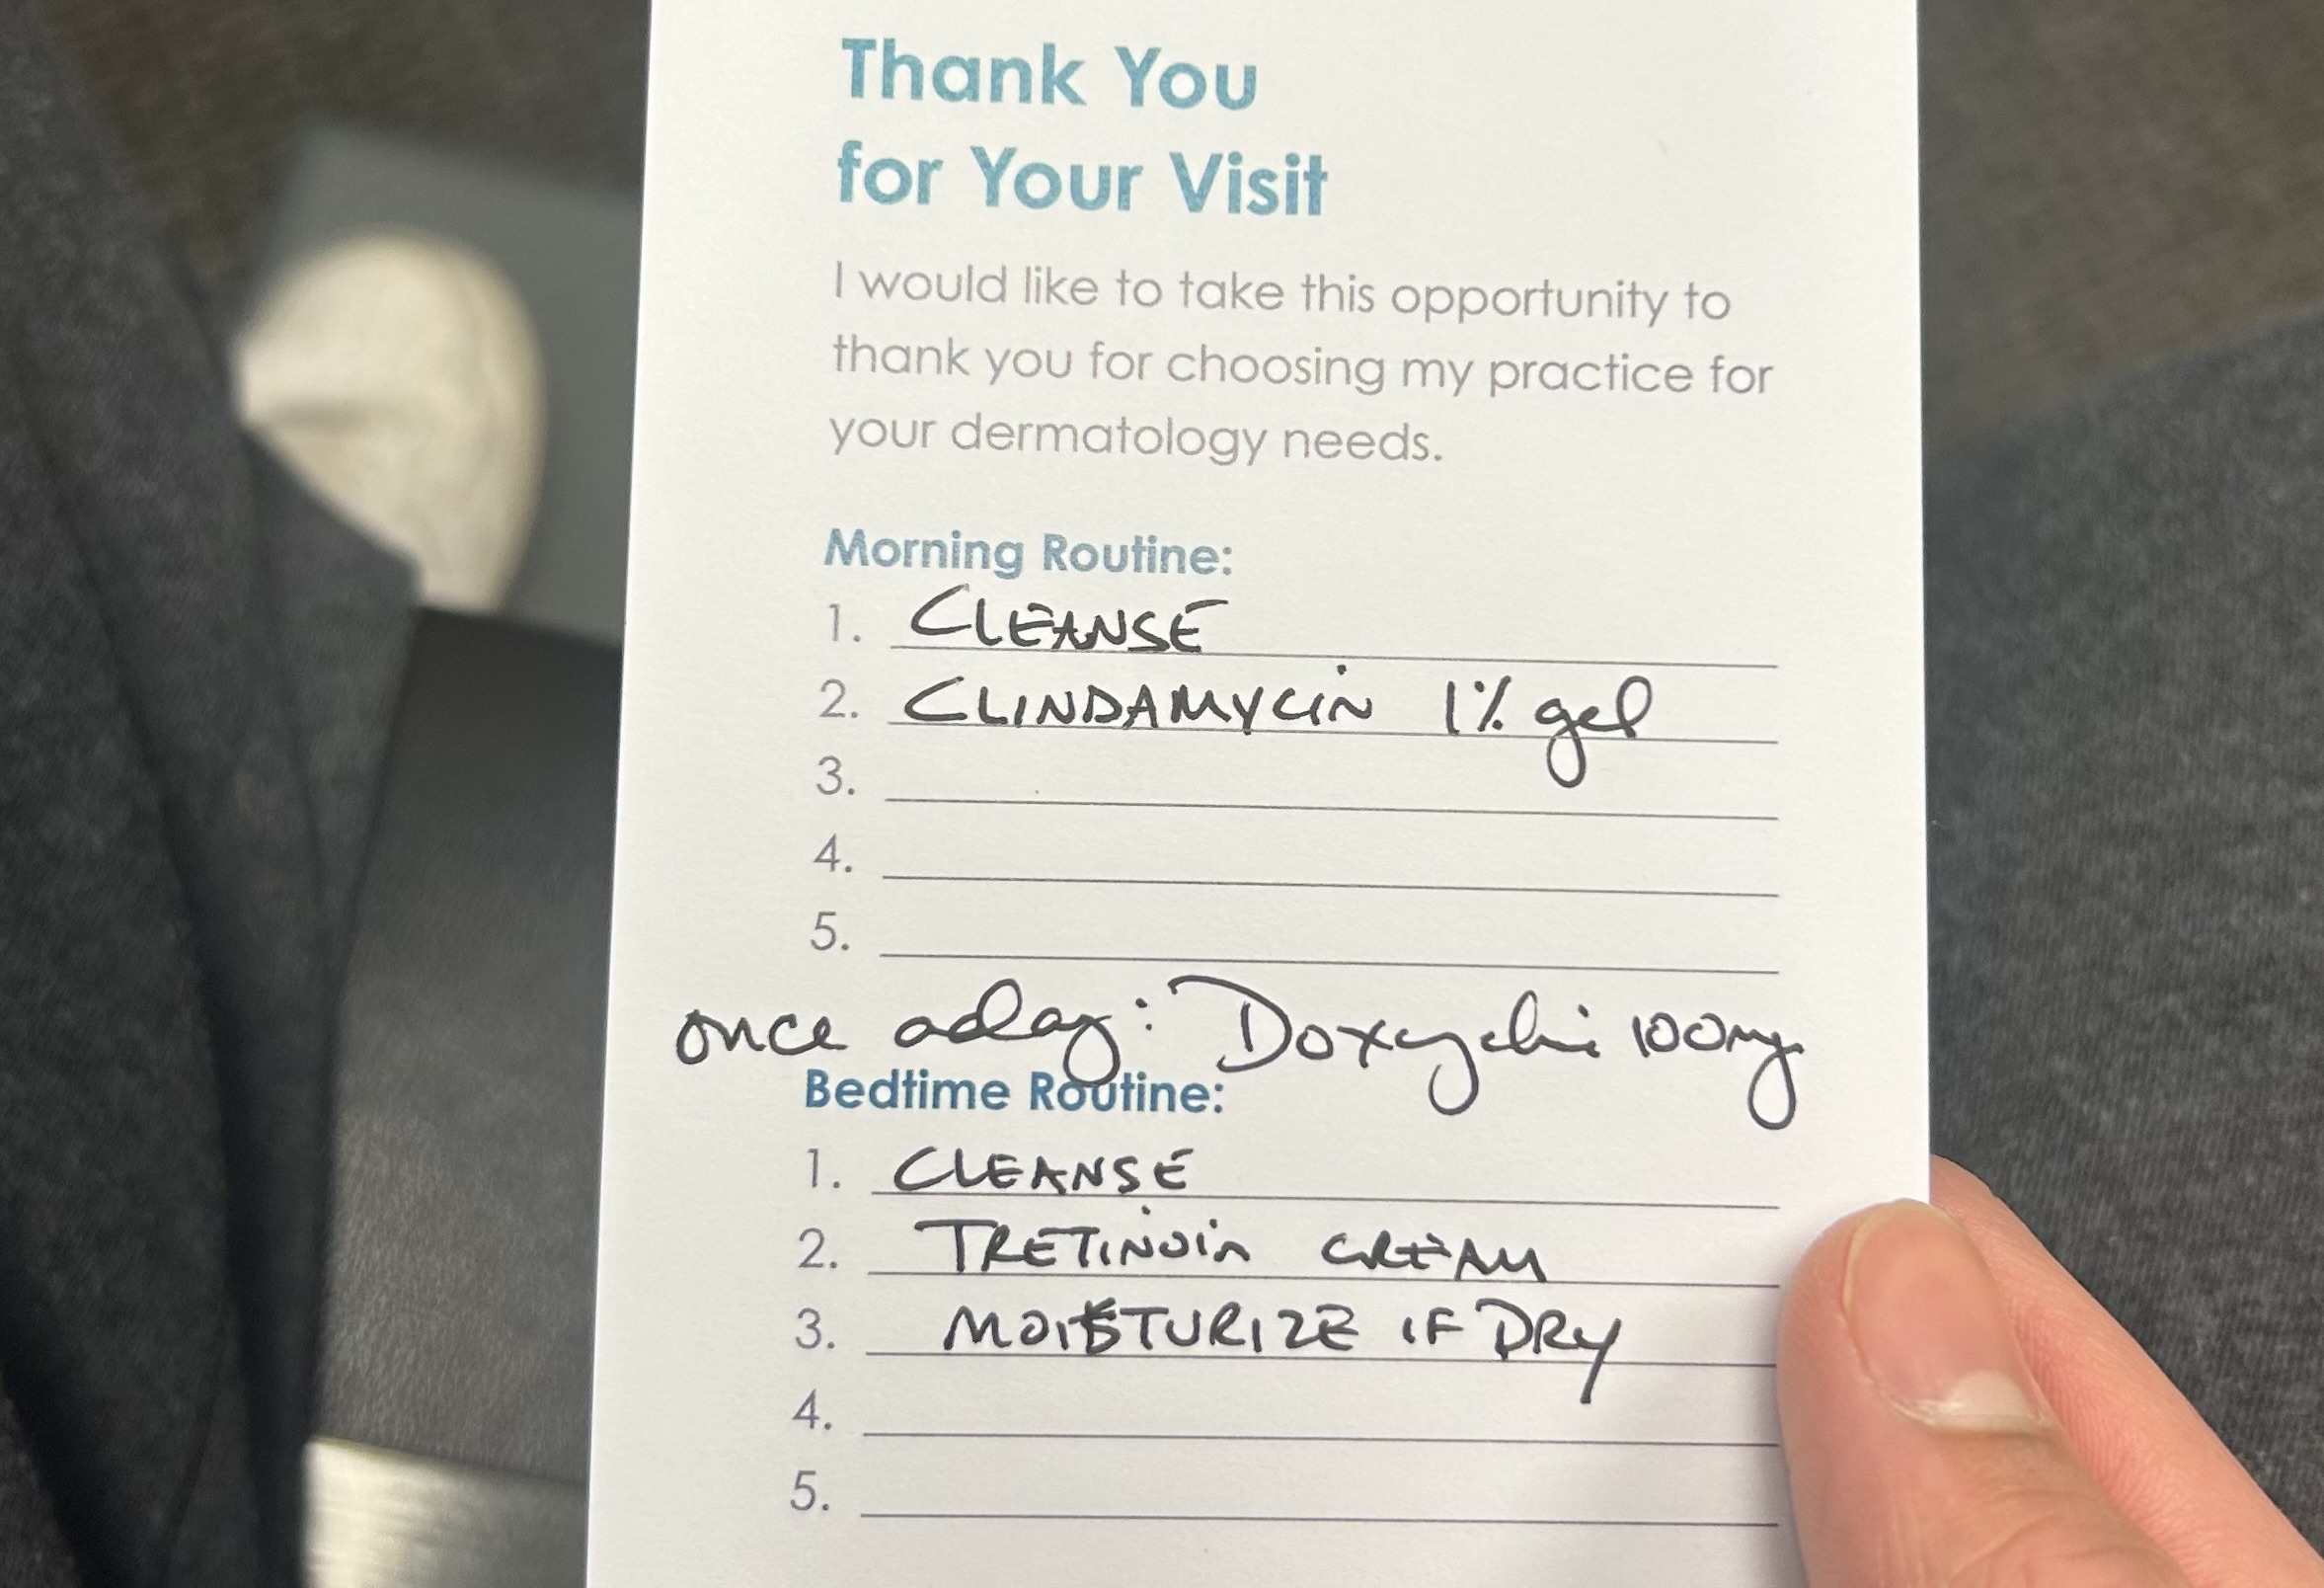 Thank You
for Your Visit
I would like to take this opportunity to
thank you for choosing my practice for
your dermatology needs.
Morning Routine:
1. CLEANSE
2. CLINDAMYCIN 1% gel
3.
4.
5.
once a day: Doxycycline 100mg
Bedtime Routine:
1. CLEANSE
2. TRETINOIN CREAM
3. MOISTURIZE IF DRY
4.
5.